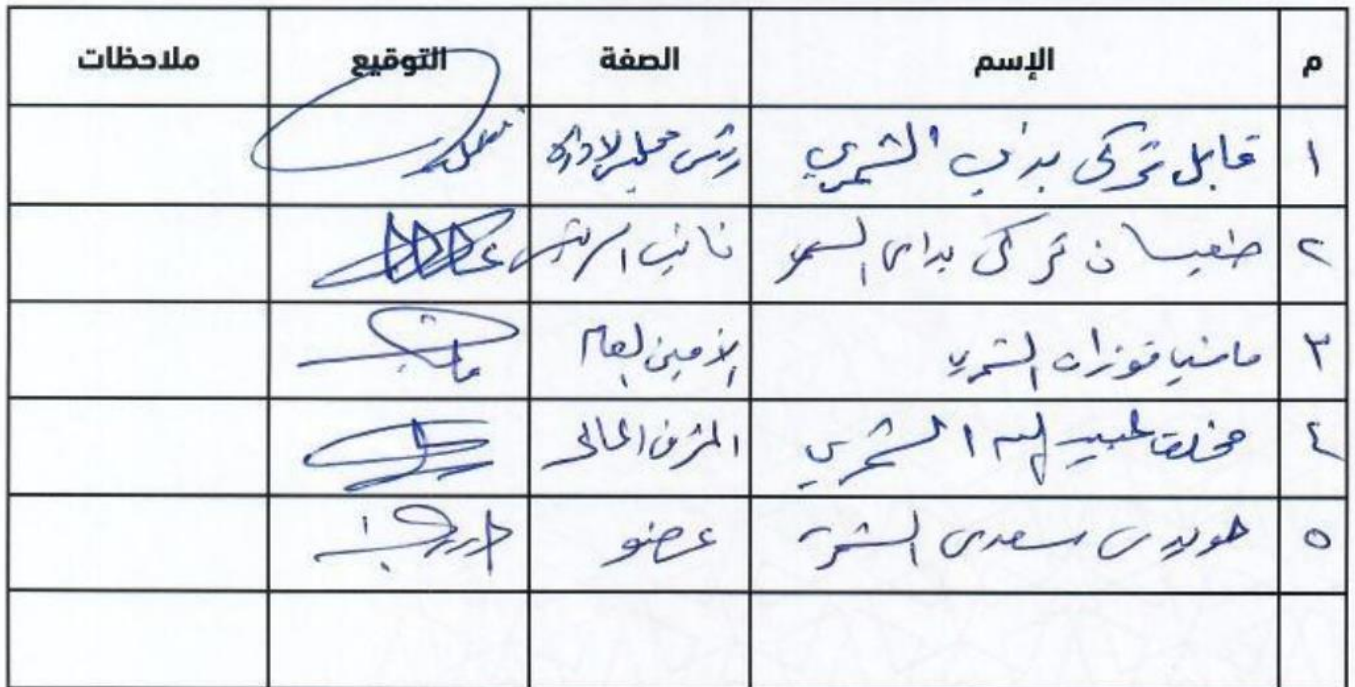 م الإسم الصفة التوقيع ملاحظات
١ قابل تركي بداي الشمري رئيس مجلس الادارة
٢ طعيسان تركي بداي الشمر نائب الرئيس
٣ فوزان الشمري الأمين العام
٤ مخلف عبيد الشمري المشرف المالي
٥ سعدي الشمري عضو